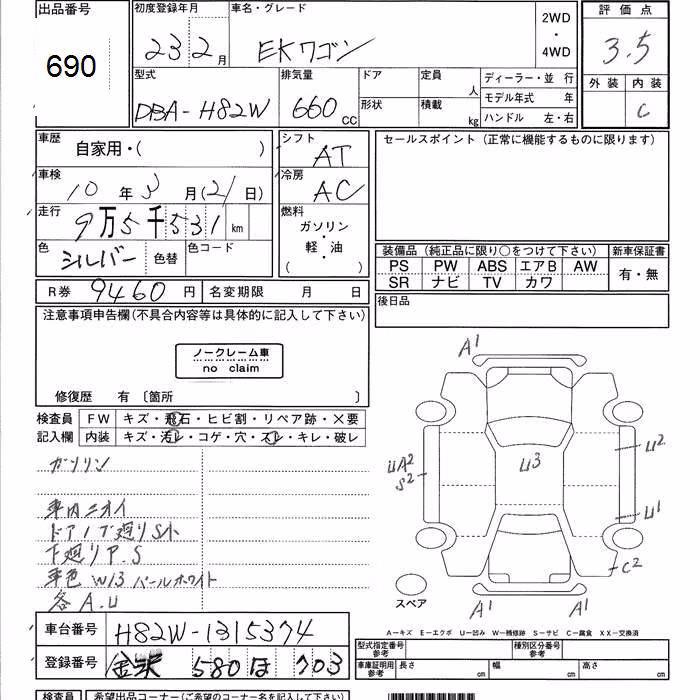 出品番号 初度登録年月 車名・グレード 2WD 評価点
690 23 2月 EKワゴン ・ 3.5
4WD
型式 排気量 ドア 定員 人 ディーラー・並行 外装 内装
DBA-H82W 660cc 形状 積載 kg モデル年式 年 C
ハンドル 左・右
車歴 自家用・( ) シフト AT セールスポイント (正常に機能するものに限ります)
車検 10年3月(21日) 冷房 AC
走行 9万5千531km 燃料 ガソリン
軽・油
( )
色 シルバー 色替 色コード 装備品 (純正品に限り○をつけて下さい) 新車保証書
PS PW ABS エアB AW 有・無
SR ナビ TV カワ
R券 9460円 名変期限 月 日 後日品
注意事項申告欄(不具合内容等は具体的に記入して下さい)
ノークレーム車
no claim
修復歴 有 〔箇所 〕
検査員 FW キズ・飛石・ヒビ割・リペア跡・×要
記入欄 内装 キズ・汚レ・コゲ・穴・スレ・キレ・破レ
ガソリン
車内ニオイ
ドア1下廻りS小
下廻りP.S
車色 W13 パールホワイト
各A.U
A1
U2
U3
UA2
S2
U1
C2
スペア
A1 A1
A-キズ E-エクボ U-凹み W-補修跡 S-サビ C-腐食 XX-交換済
車台番号 H82W-1315374
登録番号 金沢 580 ほ 703
型式指定番号 種別区分番号
車庫証明用参考 長さ cm 幅 cm 高さ cm
検査員 希望出品コーナー(ご希望のコーナー名を記入して下さい)